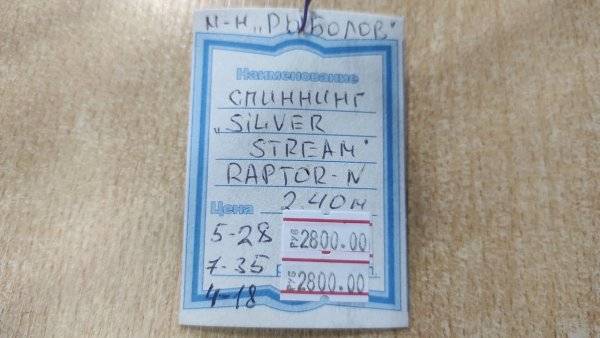 м-н „РЫБОЛОВ"
Наименование
СПИННИНГ
„SILVER
STREAM"
RAPTOR-N
2.40м
Цена
5-28 РУБ 2800.00
7-35 РУБ 2800.00
4-18